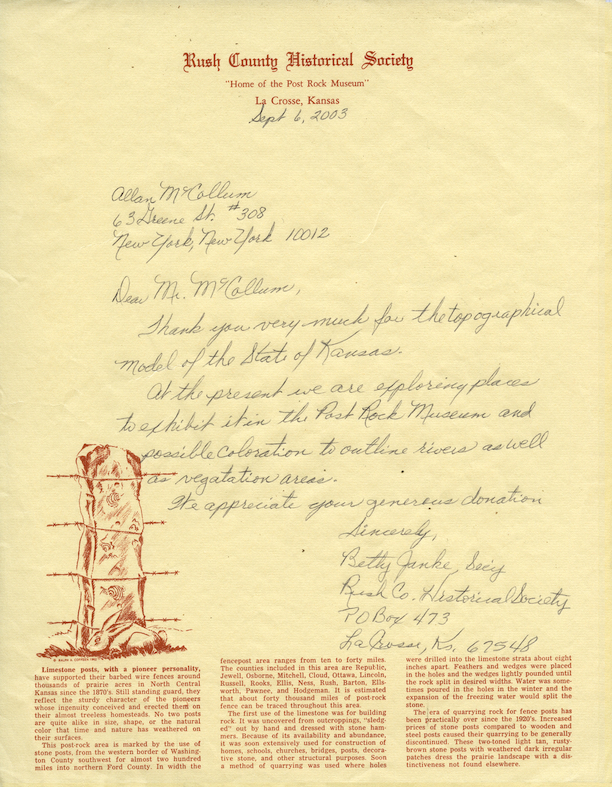 Rush County Historical Society
"Home of the Post Rock Museum"
La Crosse, Kansas
Sept 6, 2003
Allan McCollum
63 Greene St. #308
New York, New York 10012
Dear Mr. McCollum,
Thank you very much for the topographical
model of the State of Kansas.
At the present we are exploring places
to exhibit it in the Post Rock Museum and
possible coloration to outline rivers as well
as vegatation areas.
We appreciate your generous donation
Sincerely,
Betty Janke, Sec'y
Rush Co. Historical Society
PO Box 473
La Crosse, Ks. 67548
Limestone posts, with a pioneer personality,
have supported their barbed wire fences around
thousands of prairie acres in North Central
Kansas since the 1870's. Still standing guard, they
reflect the sturdy character of the pioneers
whose ingenuity conceived and erected them on
their almost treeless homesteads. No two posts
are quite alike in size, shape, or the natural
color that time and nature has weathered on
their surfaces.
This post-rock area is marked by the use of
stone posts, from the western border of Washing-
ton County southwest for almost two hundred
miles into northern Ford County. In width the
fencepost area ranges from ten to forty miles.
The counties included in this area are Republic,
Jewell, Osborne, Mitchell, Cloud, Ottawa, Lincoln,
Russell, Rooks, Ellis, Ness, Rush, Barton, Ells-
worth, Pawner, and Hodgeman. It is estimated
that about forty thousand miles of post-rock
fence can be traced throughout this area.
The first use of the limestone was for building
rock. It was uncovered from outcroppings, "sledg-
ed" out by hand and dressed with stone ham-
mers. Because of its availability and abundance,
it was soon extensively used for construction of
homes, schools, churches, bridges, posts, decora-
tive stone, and other structural purposes. Soon
a method of quarrying was used where holes
were drilled into the limestone strata about eight
inches apart. Feathers and wedges were placed
in the holes and the wedges lightly pounded until
the rock split in desired widths. Water was some-
times poured in the holes in the winter and the
expansion of the freezing water would split the
stone.
The era of quarrying rock for fence posts has
been practically over since the 1920's. Increased
prices of stone posts compared to wooden and
steel posts caused their quarrying to be generally
discontinued. These two-toned light tan, rusty-
brown stone posts with weathered dark irregular
patches dress the prairie landscape with a dis-
tinctiveness not found elsewhere.